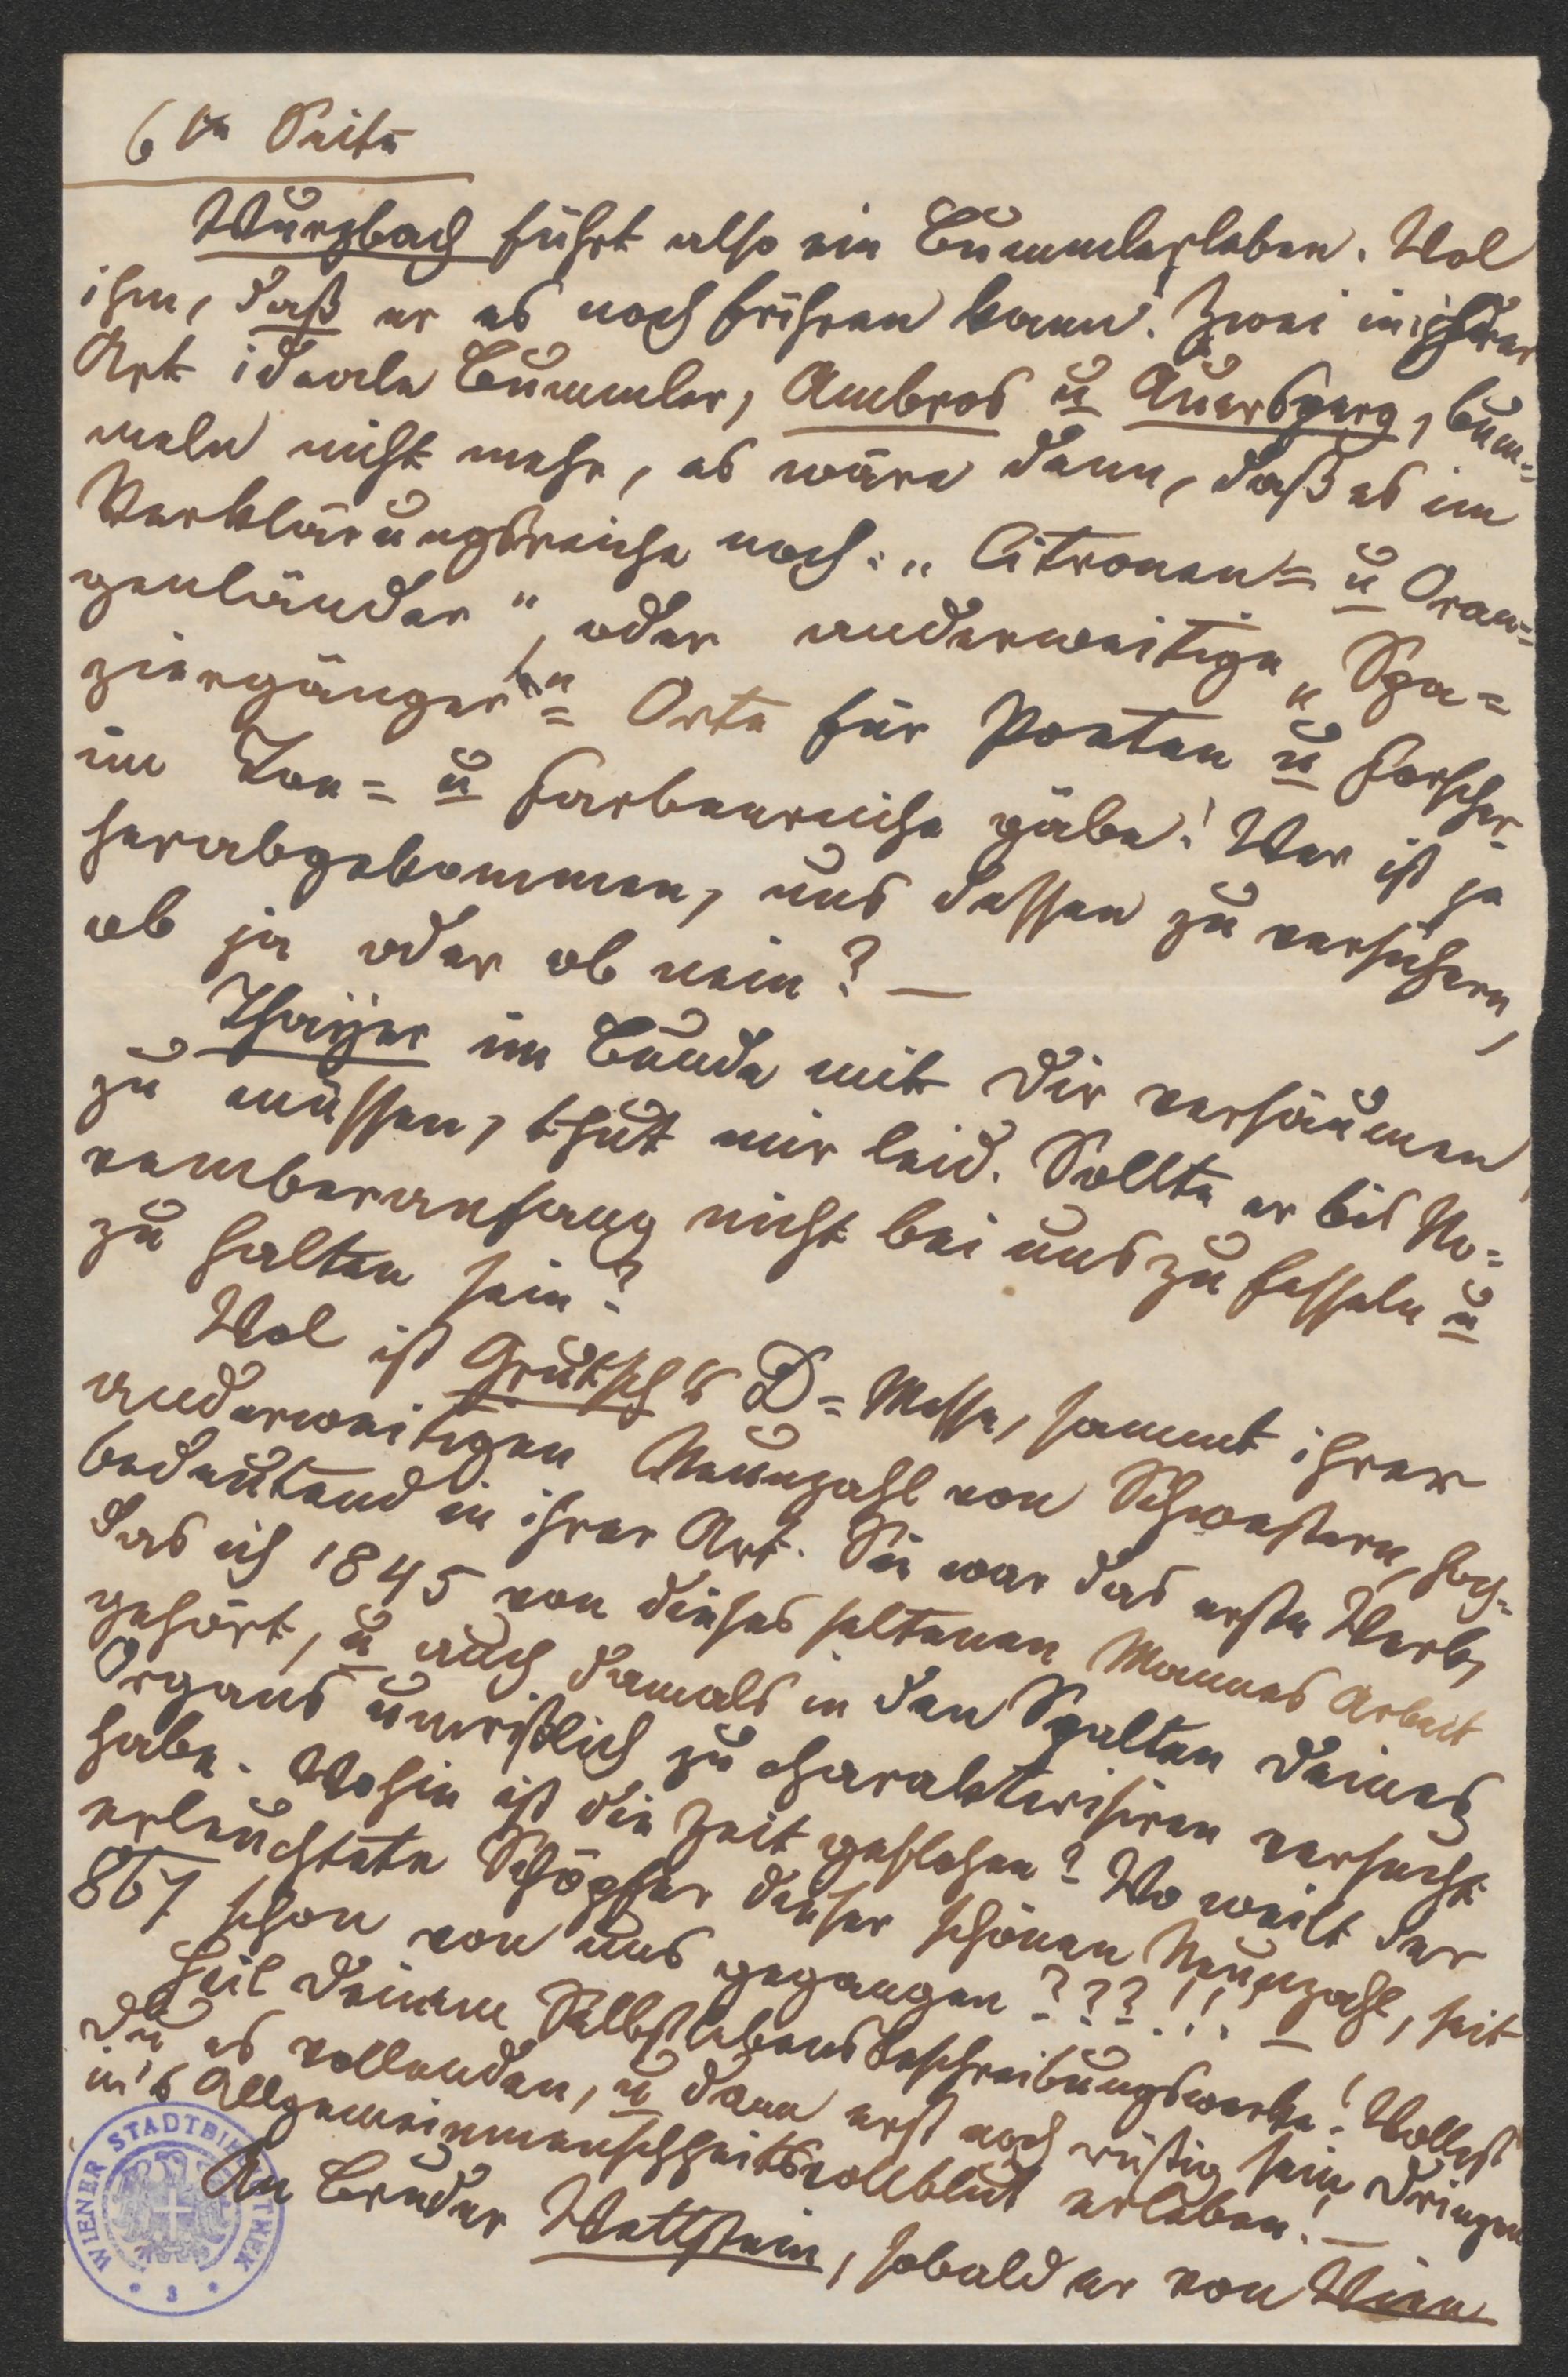 6te Seite
Wurzbach führt also ein Bummlerleben. Wol
ihm, daß er es noch führen kann! Zwei in ihrer
Art ideale Bummler, Ambros u Auersperg, bum=
meln nicht mehr, es wäre denn, daß es im
Verklärungsreiche noch: „Citronen= u Oran=
genländer", oder anderweitige „Spa=
ziergänger"= Orte für Poeten u Forscher
im Ton= u Farbenreiche gäbe! Wer ist je
herabgekommen, uns dessen zu versichern,
ob ja oder ob nein? —
Thayer im Bunde mit Dir versäumen
zu müssen, thut mir leid. Sollte er bis No=
vemberanfang nicht bei uns zu fesseln u
zu halten sein?
Wol ist Grutsch's D=Messe, sammt ihrer
anderweitigen Neunzahl von Schwestern, hoch=
bedeutend in ihrer Art. Sie war das erste Werk,
das ich 1845 von dieses seltenen Mannes Arbeit
gehört, u auch damals in den Spalten Deines
Organs umrißlich zu charakterisiren versucht
habe. Wohin ist die Zeit geflohen? Wo weilt der
erleuchtete Schöpfer dieser schönen Neunzahl, seit
867 schon von uns gegangen???!!! —
Heil Deinem Selbstlebensbeschreibungswerke! Wollest
Du es vollenden, u dann erst noch rüstig sein Dringen
in's Allgemeinmenschheitsvollblut erleben! —
An Bruder Wallstein, sobald er von Wien
WIENER STADTBIBLIOTHEK